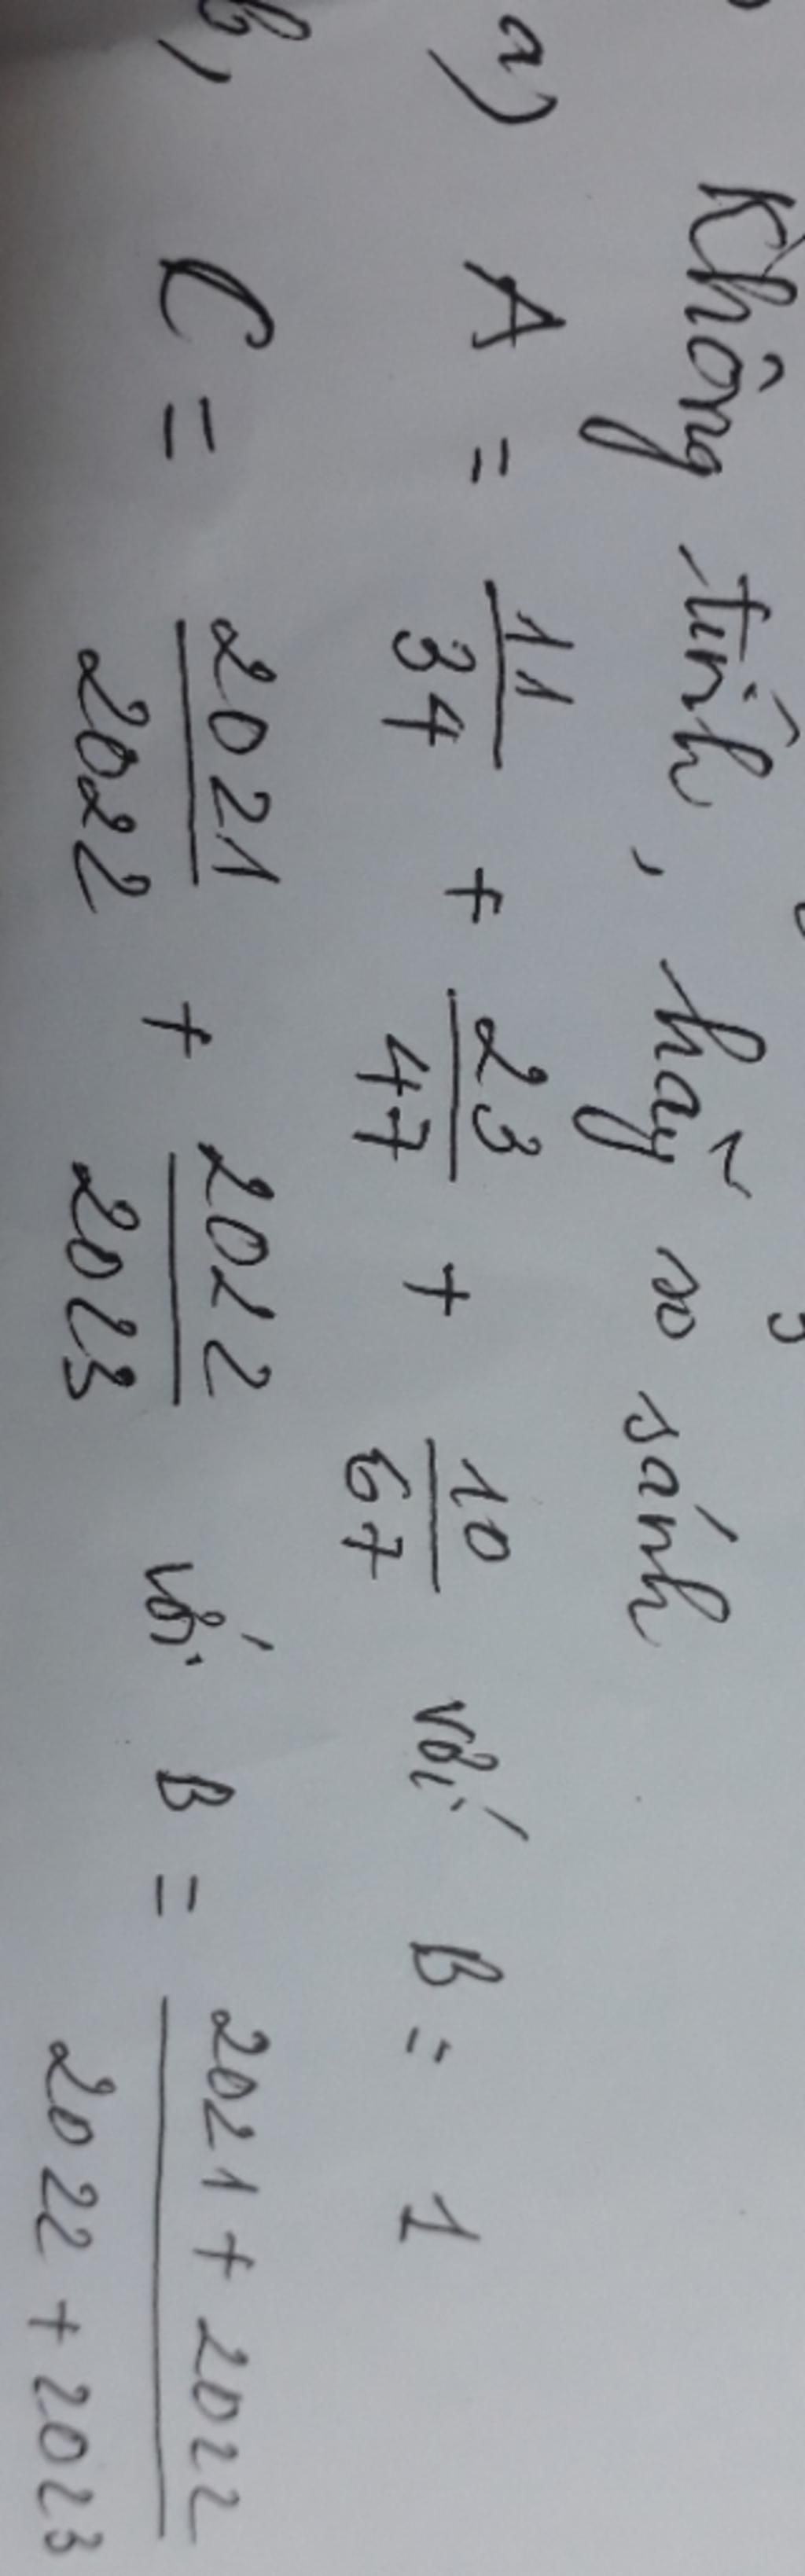 Không tính, hãy so sánh
a) A = 11/34 + 23/47 + 10/67 với B = 1
b, C = 2021/2022 + 2022/2023 với B = (2021 + 2022)/(2022 + 2023)